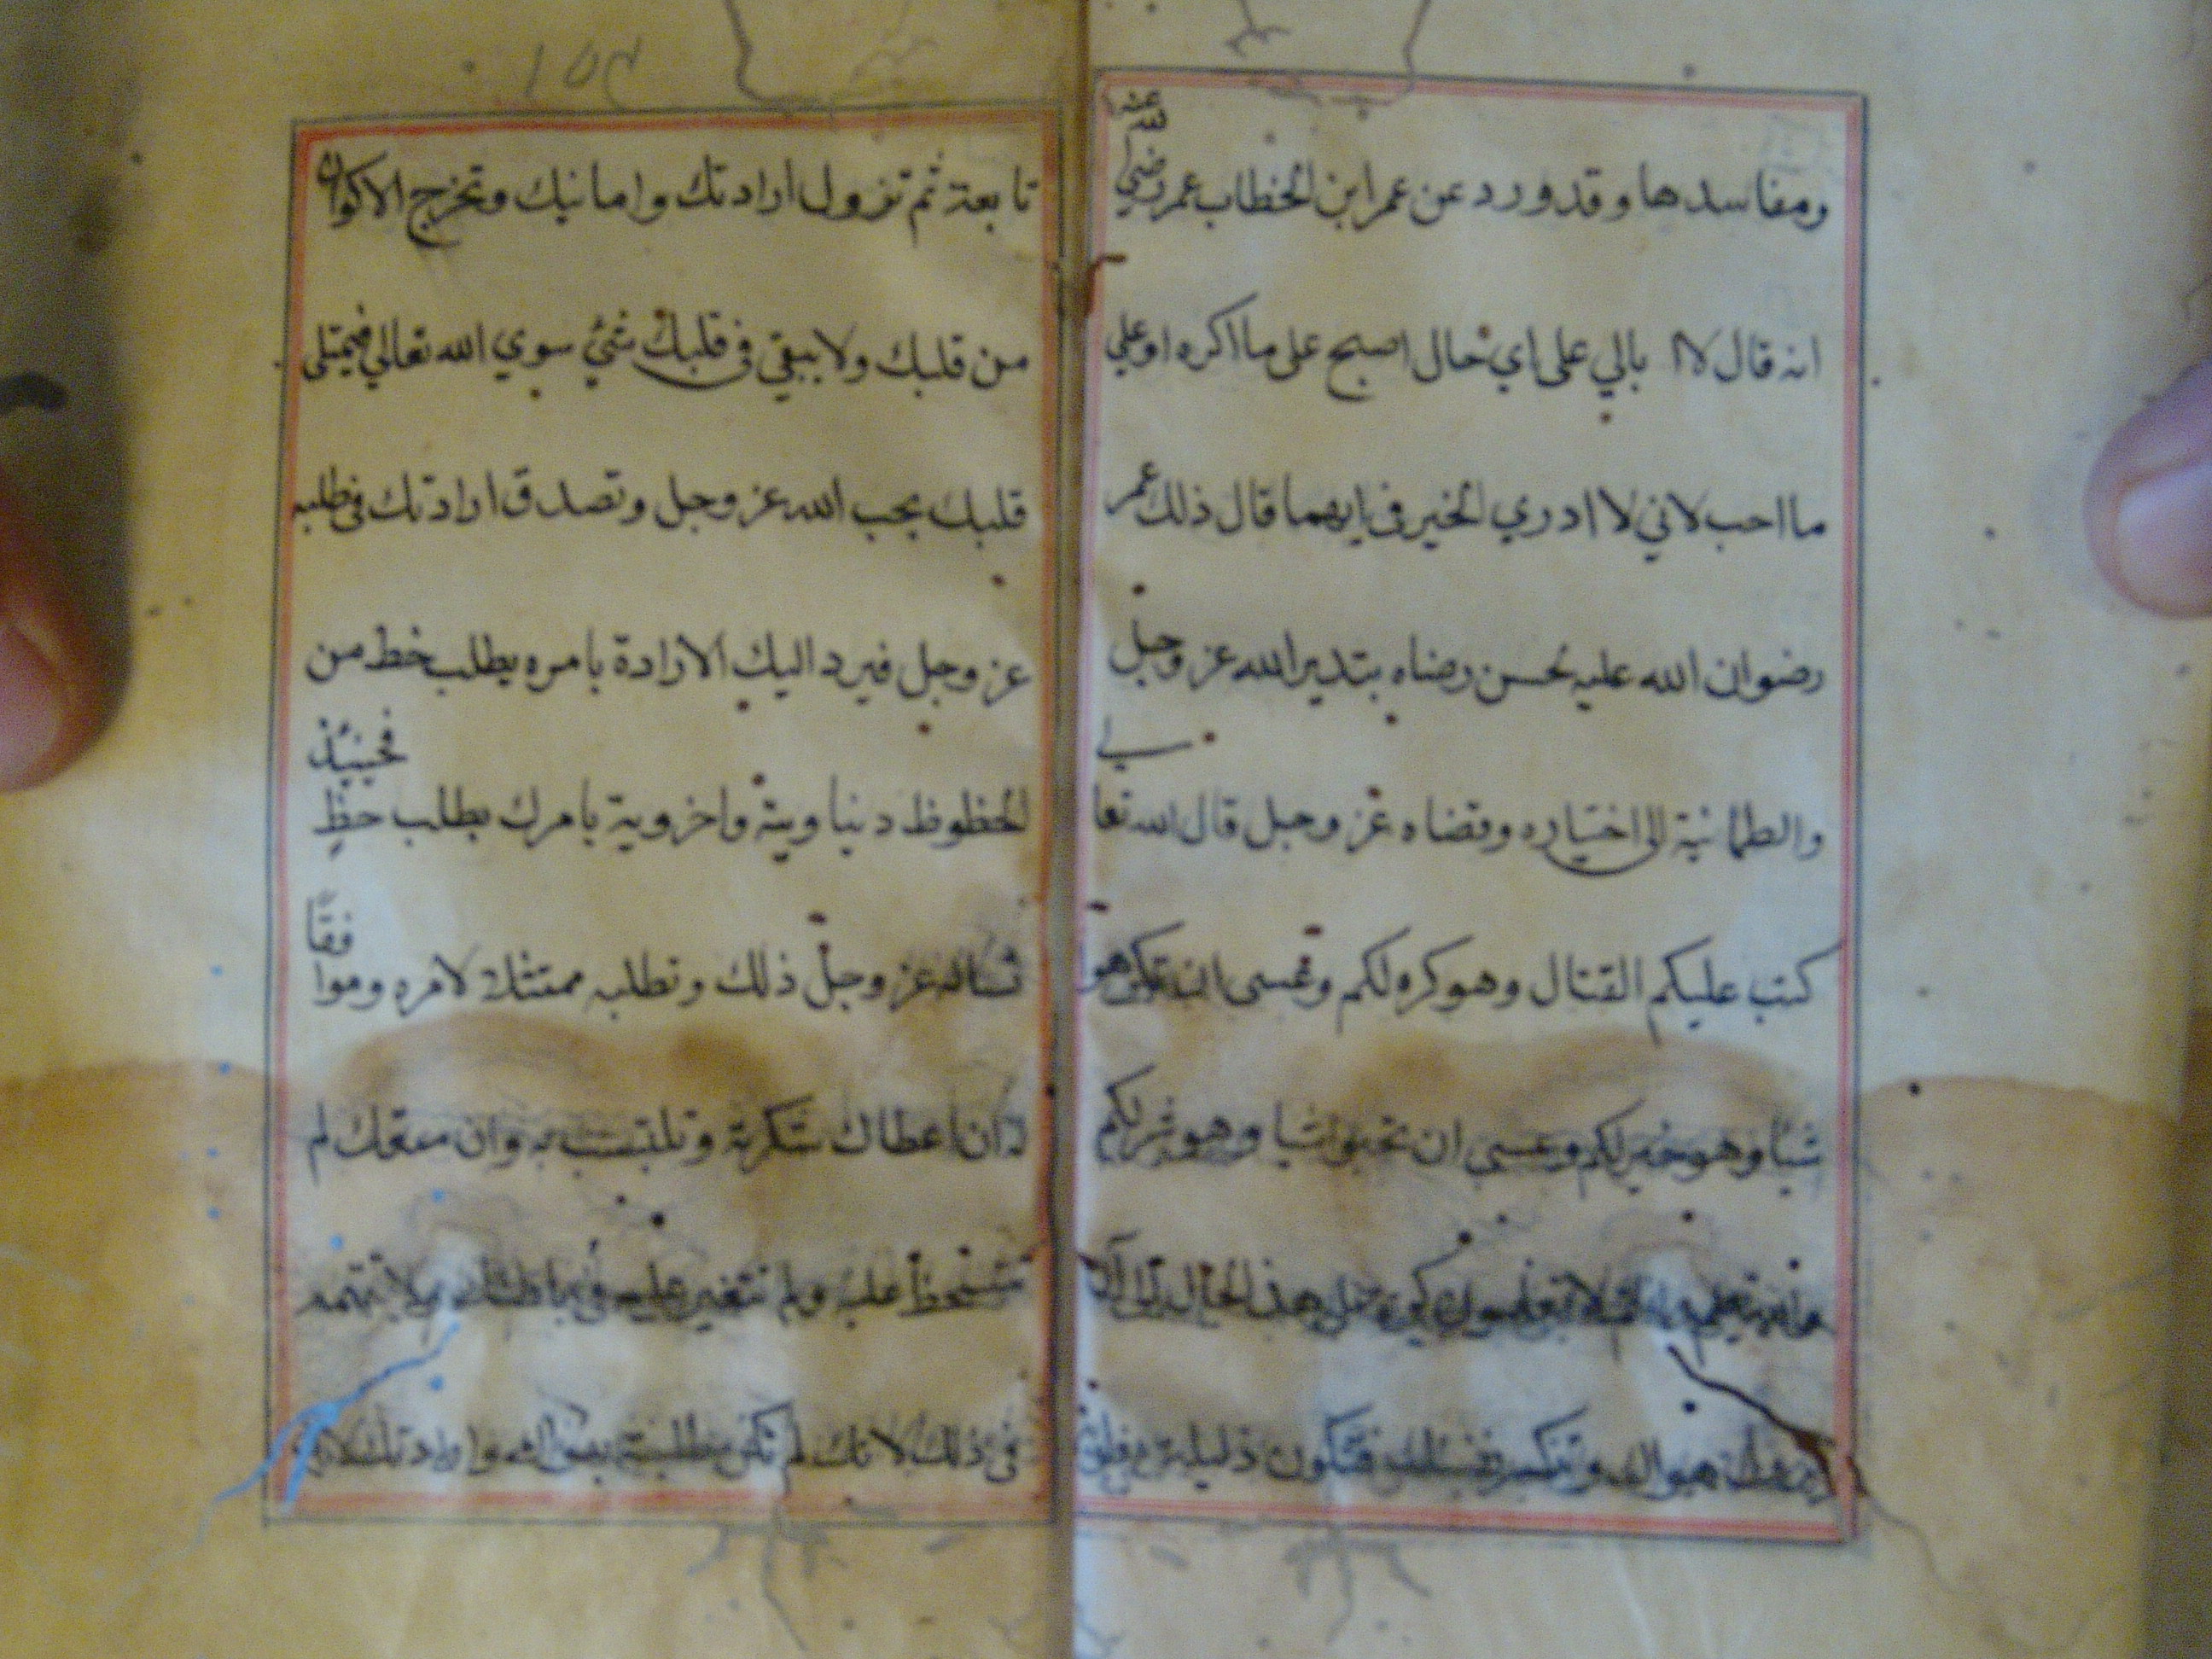 ومفاسدها وقد ورد عن عمر ابن الخطاب عمر رضي الله عنه
انه قال لا ا بالي على اي حال اصبح على ما اكره او علي
ما احب لاني لا ادري الخير في ايهما قال ذلك عمر
رضوان الله عليه لحسن رضاه بتدير الله عز وجل
والطمانية الى اختياره وقضاه عز وجل قال الله تعالي
كتب عليكم القتال وهو كره لكم وعسى ان تكرهو
شيا وهو خير لكم وعسى ان تحبوا شيا وهو شر لكم
والله يعلم وانتم لا تعلمون كن على هذ الحال الى ان
هواك وتنكسر نفسك فتكون ذليلة
١٥٤
تابعة ثم تزول ارادتك وامانيك وتخرج الاكوان
من قلبك ولا يبقي في قلبك شيء سوي الله تعالي فيمتلى
قلبك بحب الله عز وجل وتصدق ارادتك في طلبه
عز وجل فيرد اليك الارادة بامره يطلب خط من
الحظوظ دنياوية واخروية يامرك بطلب حظٍ فحينئذ
تساله عز وجل ذلك وتطلبه ممتثلا لامره وموافقًا
له ان اعطاك شكرته وتلبست به وان منعك لم
تتسخط عليه ولم تتغير عليه في باطنك ولا تتهمه
في ذلك لانك لم تكن طلبته بهواك وارادتك